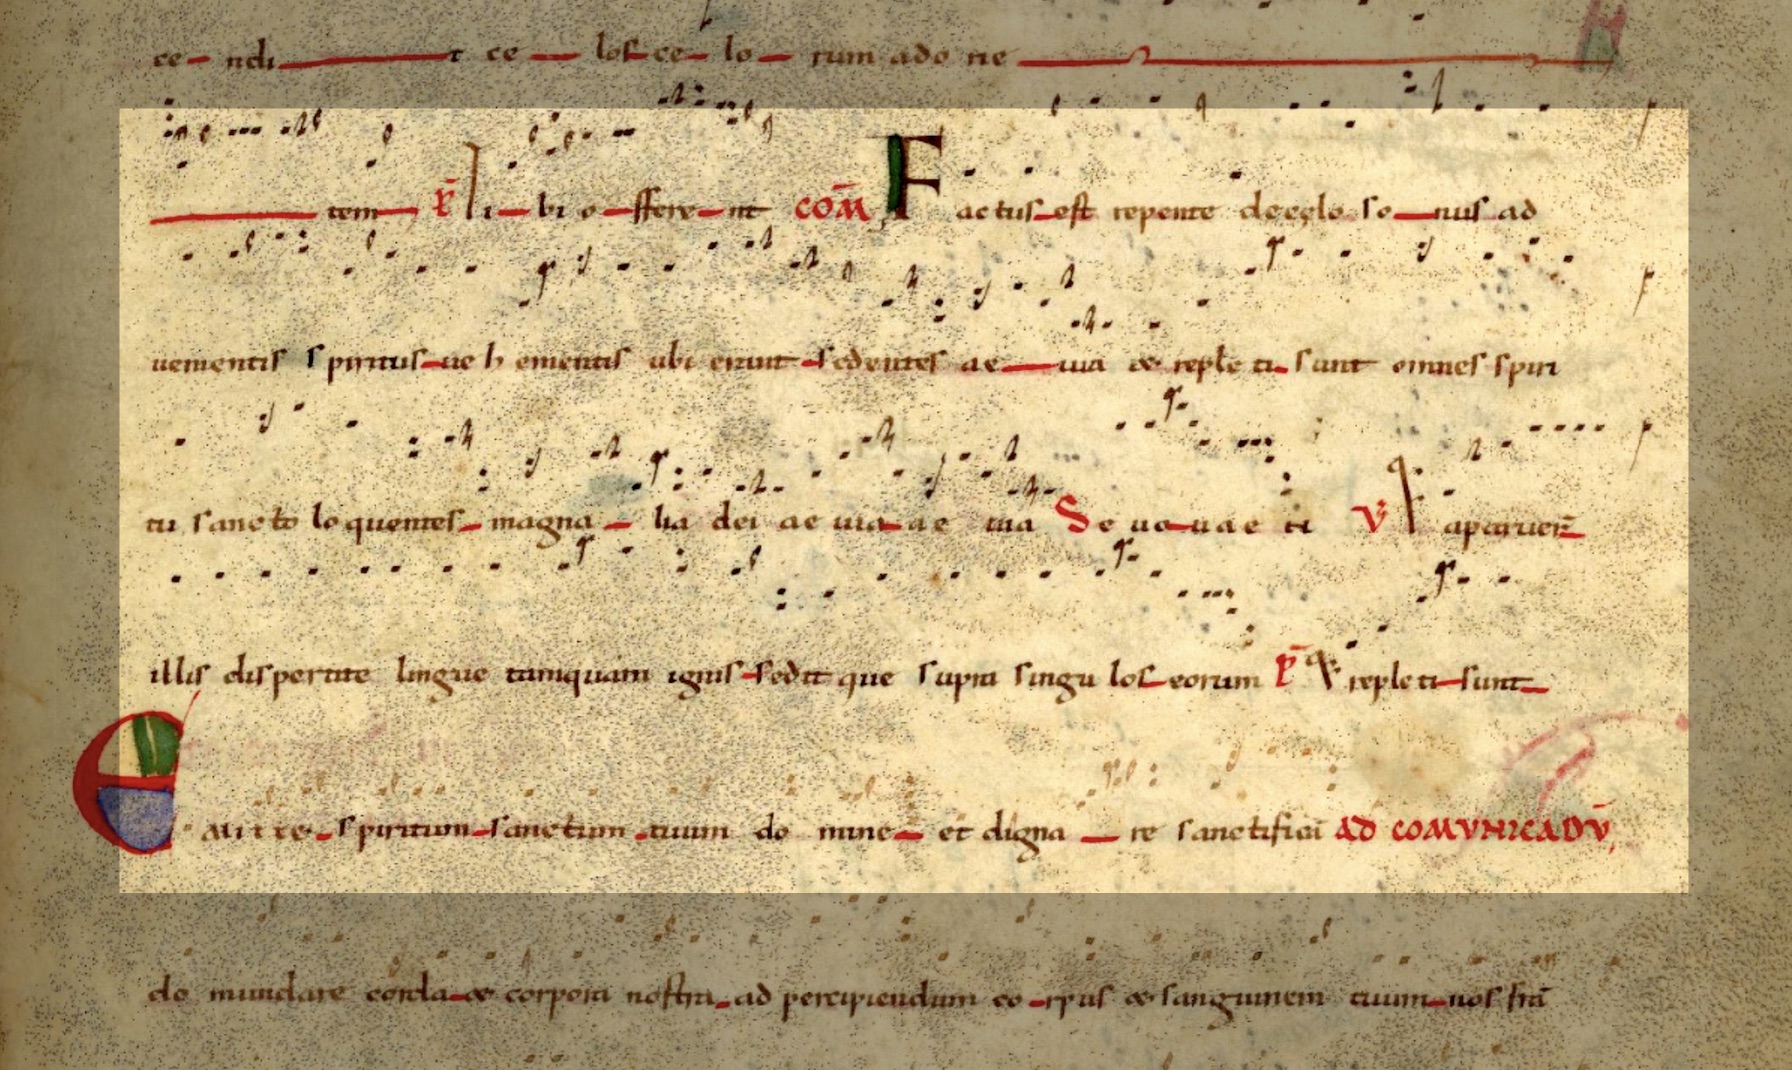 ce ndit ce los ce lo rum ado ne
tem R̄ Tibi o ffere nt COM̄ Factus est repente de celo so nus ad
uementis spiritus ue hementis ubi erant sedentes ae uia & reple ti sunt omnes spiri
tu sancto loquentes magna lia dei ae uia ae uia Se uo uae ti V̄ aparuer̄
illis dispertite lingue tamquam ignis sedit que supra singu los eorum R̄ repleti sunt
Emitte spiritum sanctum tuum do mine et digna re sanctificai AD COMVNICADV̄
do mundare corda & corpora nostra ad percipiendum co rpus & sanguinem tuum nos fra